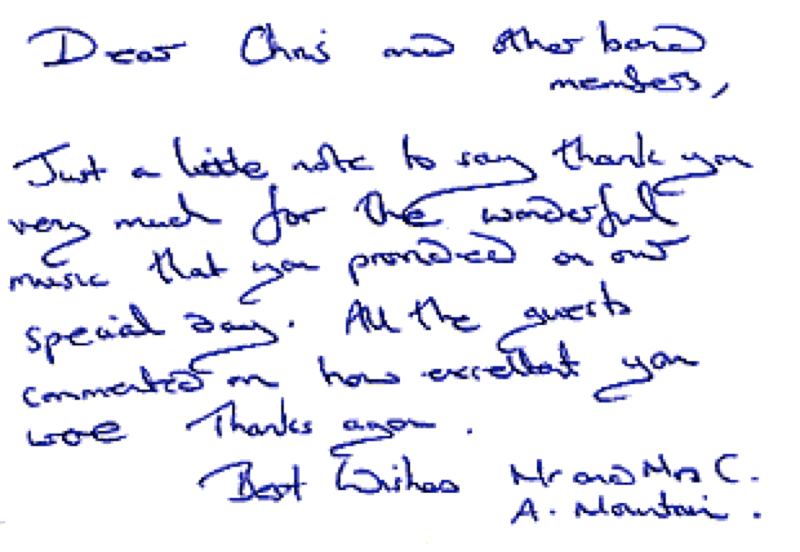 Dear Chris and other band
members,
Just a little note to say thank you
very much for the wonderful
music that you provided on our
special day. All the guests
commented on how excellent you
were Thanks again.
Best Wishes Mr and Mrs C.
A. Mountain.